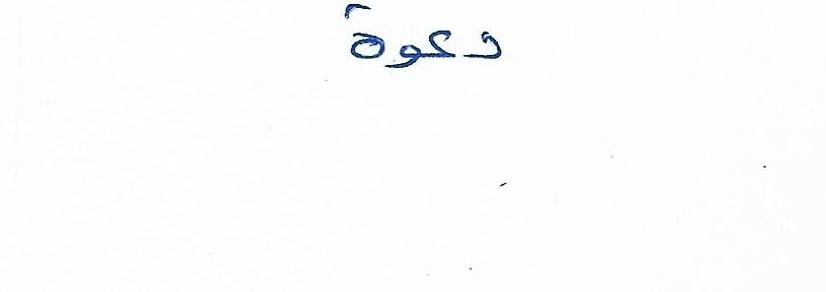 دعوة